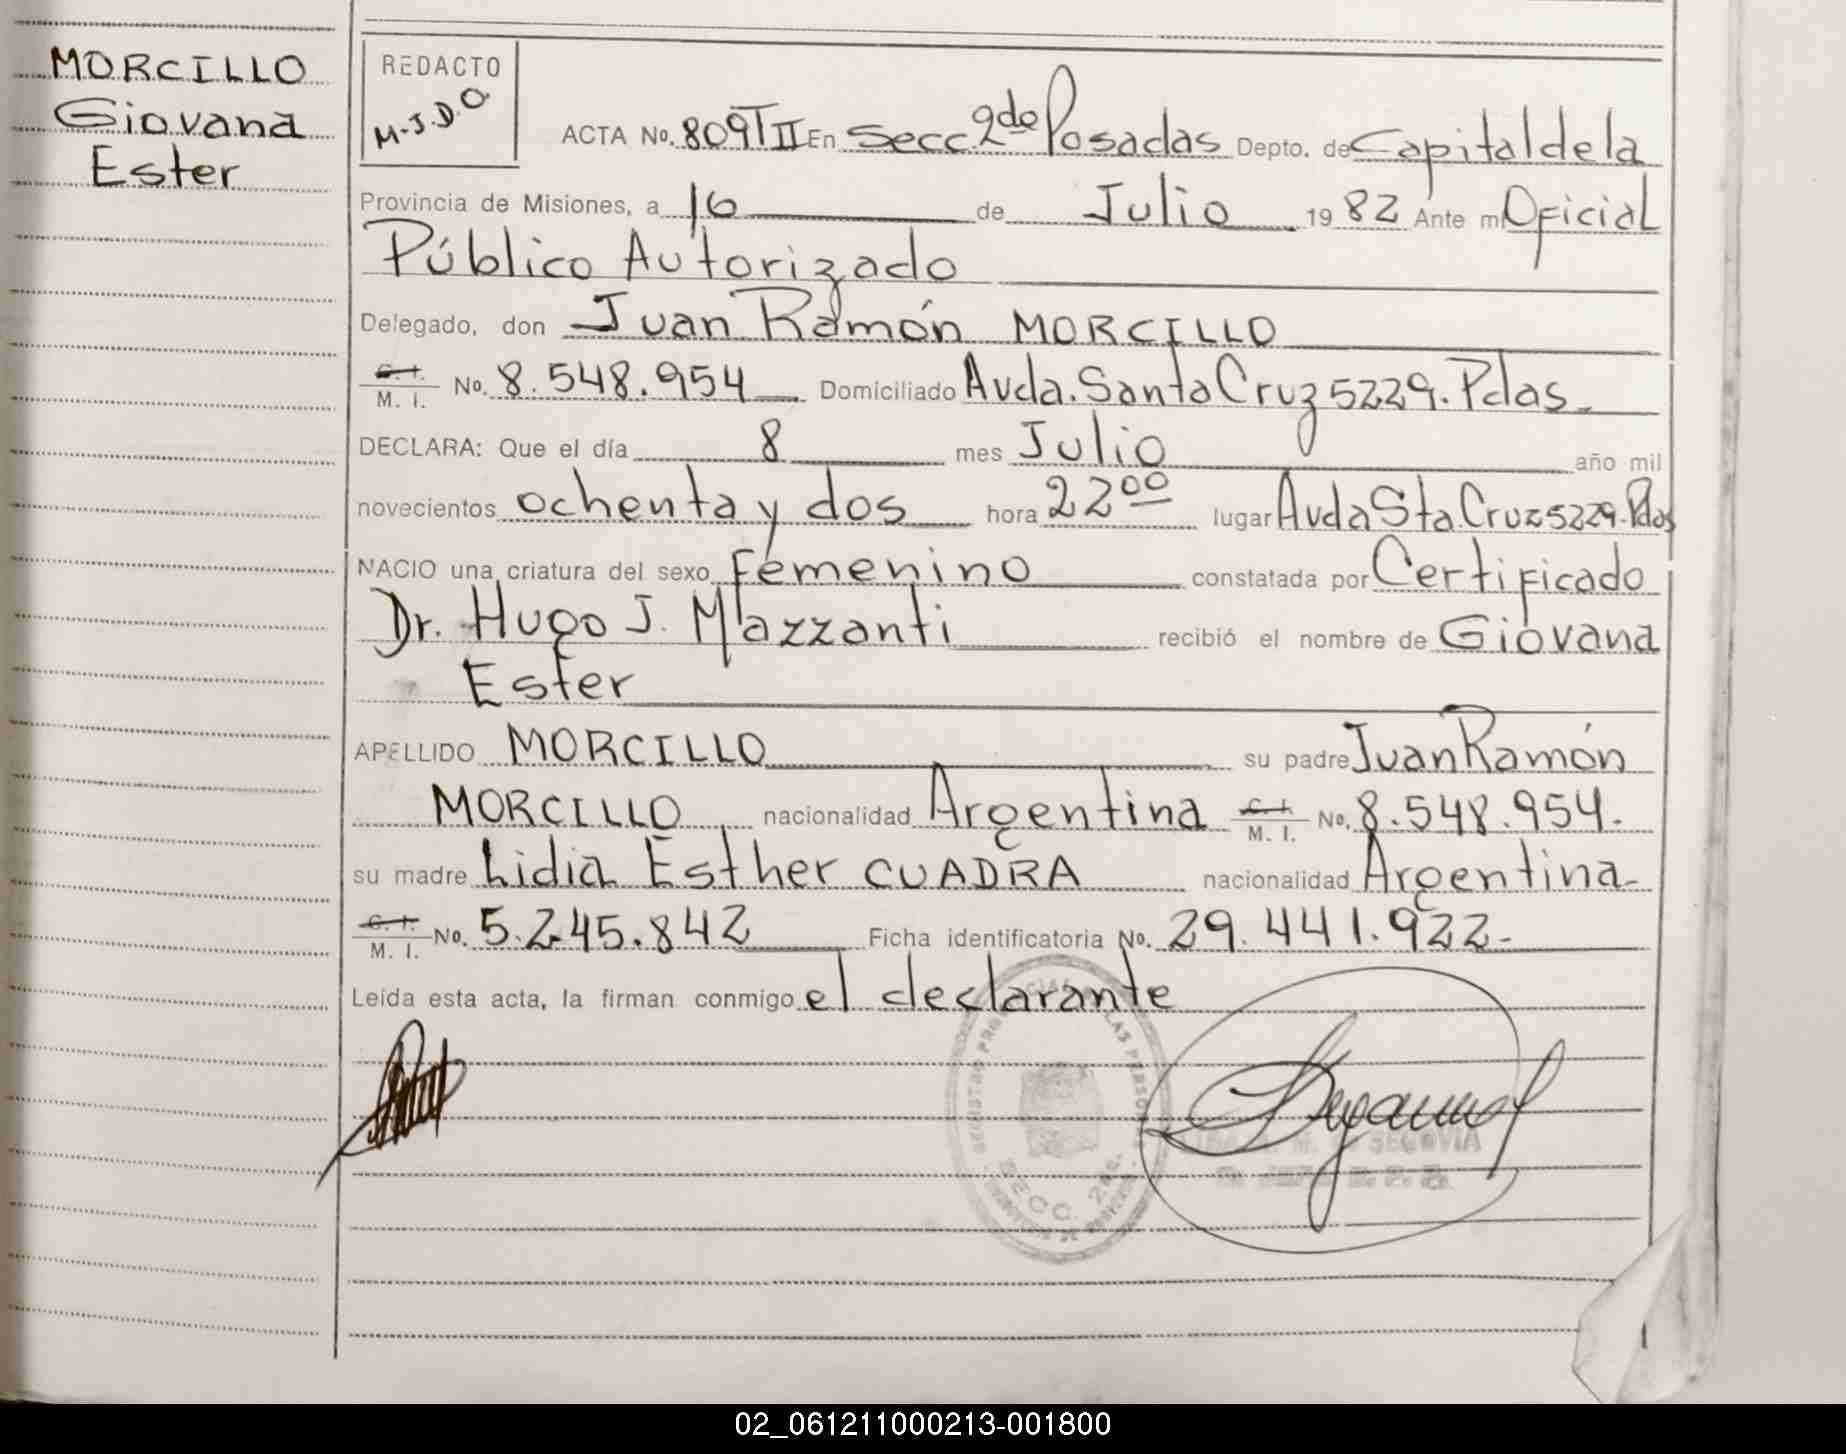 MORCILLO
Giovana
Ester
REDACTO
M.J.D.O.
ACTA No. 809 T II En Secc. 2da Posadas Depto. de Capital de la
Provincia de Misiones, a 16 de Julio 19 82 Ante mí Oficial
Público Autorizado
Delegado, don Juan Ramón MORCILLO
C. I.
M. I. No. 8.548.954 Domiciliado Avda. Santa Cruz 5229. Pdas.
DECLARA: Que el día 8 mes Julio año mil
novecientos ochenta y dos hora 22 00 lugar Avda Sta. Cruz 5229. Pdas
NACIO una criatura del sexo Femenino constatada por Certificado
Dr. Hugo J. Mazzanti recibió el nombre de Giovana
Ester
APELLIDO MORCILLO su padre Juan Ramón
MORCILLO nacionalidad Argentina C. I. M. I. No. 8.548.954.
su madre Lidia Esther CUADRA nacionalidad Argentina-
C. I.
M. I. No. 5.245.842 Ficha identificatoria No. 29.441.922-
Leída esta acta, la firman conmigo el declarante
SECC. 2da.
SEGOVIA
02_061211000213-001800